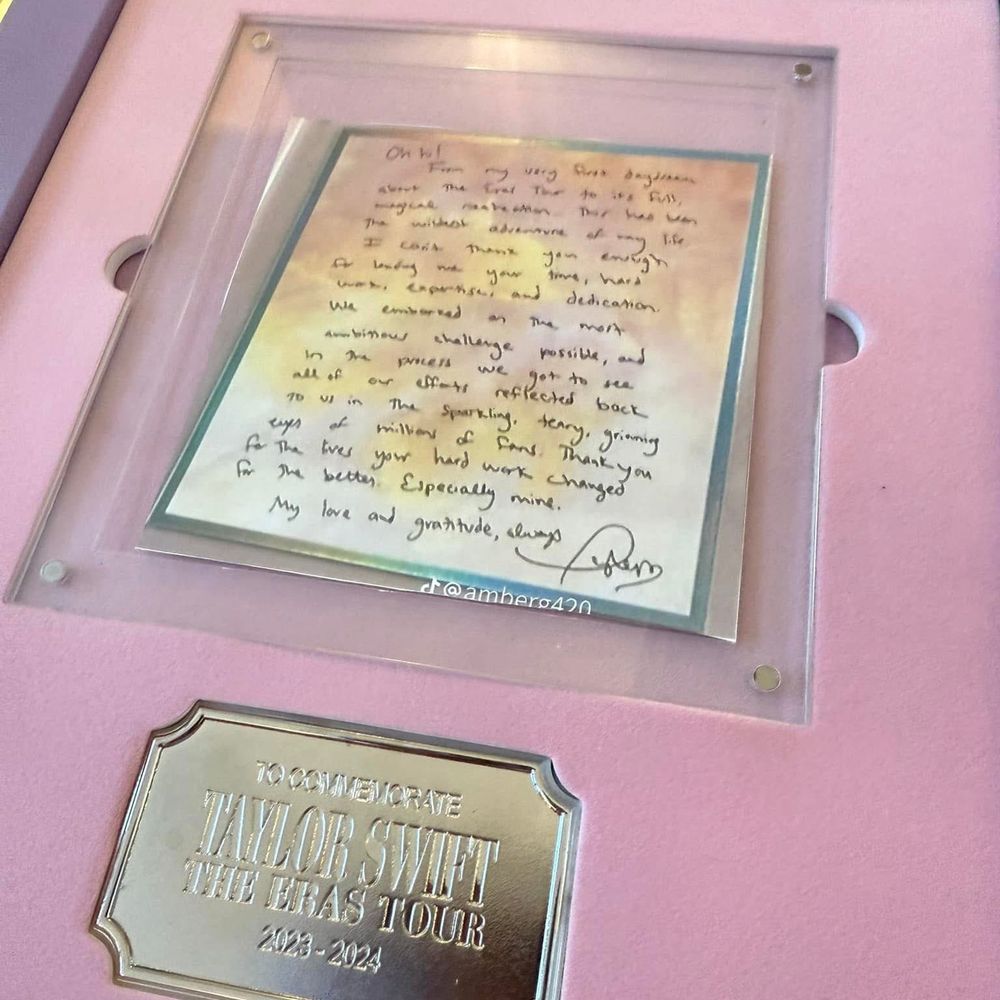 Oh hi!
From my very first daydream
about The Eras Tour to its full,
magical realization. This has been
The wildest adventure of my life
I can't thank you enough
for lending me your time, hard
work, expertise, and dedication.
We embarked on The most
ambitious challenge possible, and
in The process we got to see
all of our efforts reflected back
To us in The sparkling, teary, grinning
eyes of millions of fans. Thank you
for The lives your hard work changed
for The better. Especially mine.
My love and gratitude, always
@amberg420
TO COMMEMORATE
TAYLOR SWIFT
THE ERAS TOUR
2023 - 2024